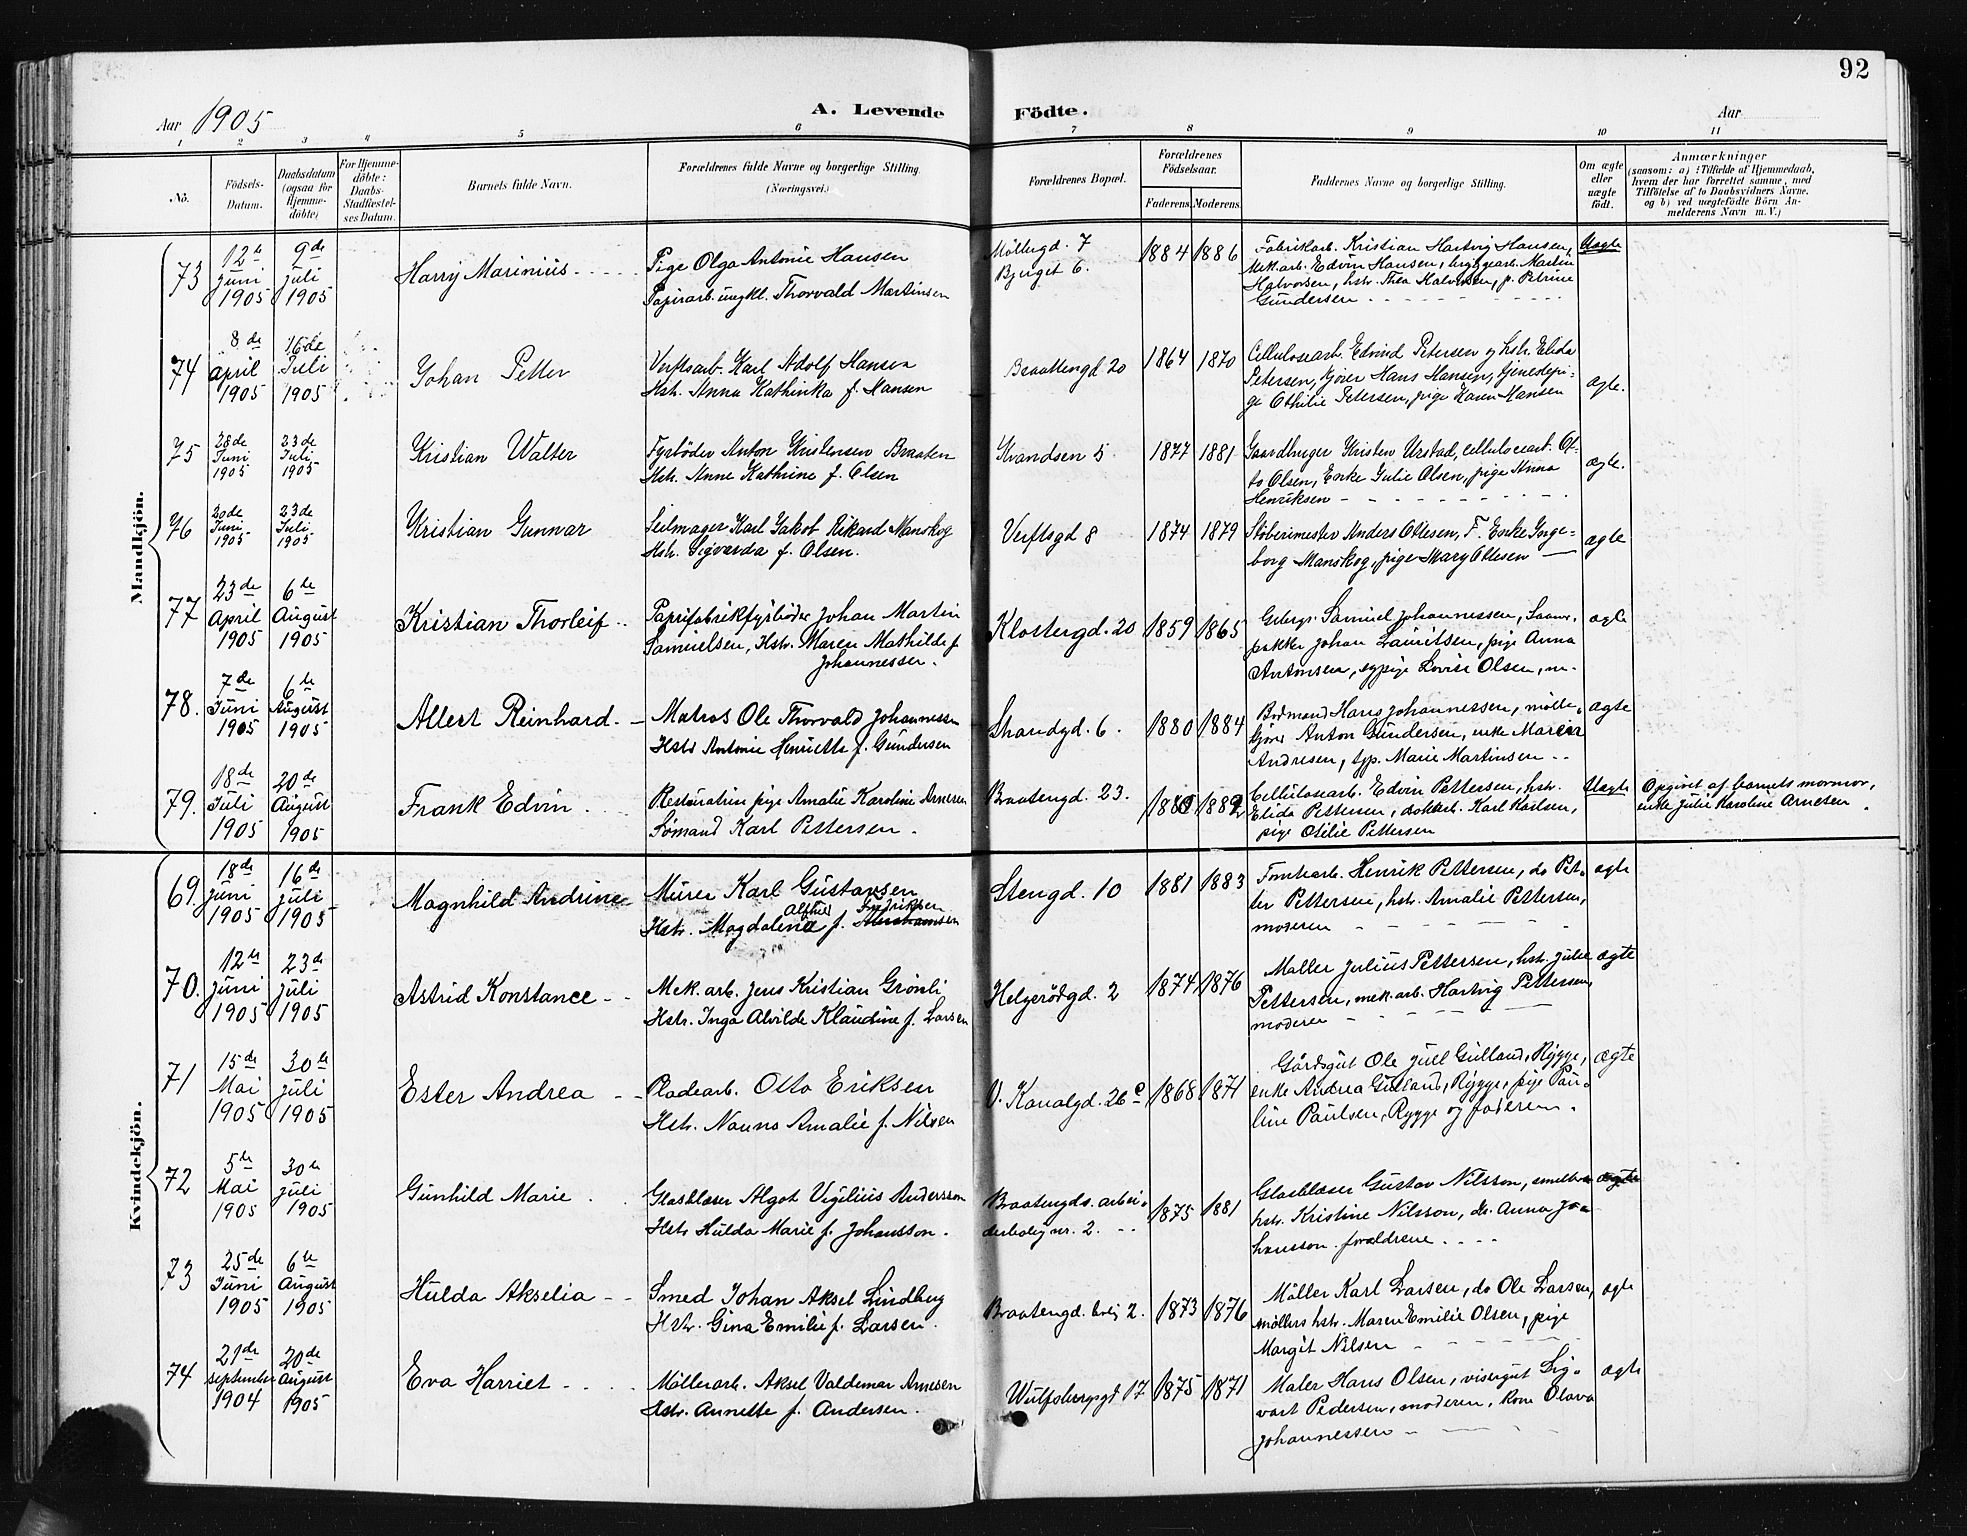 92
Aar 1905
A. Levende Födte.
Aar
1 2 3 4 5 6 7 8 9 10 11
No.
Födsels-
Datum.
Daabsdatum
(ogsaa for
Hjemme-
döbte)
For Hjemme-
döbte:
Daabs-
Stadfæstel-
ses Datum.
Barnets fulde Navn.
Forældrenes fulde Navne og borgerlige Stilling.
(Næringsvei.)
Forældrenes Bopæl.
Forældrenes
Födselsaar.
Faderens. Moderens.
Faddernes Navne og borgerlige Stilling.
Om ægte
eller
uægte
födt.
Anmærkninger
(saasom: a) i Tilfælde af Hjemmedaab,
hvem der har forrettet samme, med
Tilföielse af to Daabsvidners Navne.
og b) ved uægtefödte Börn An-
melderens Navn m. V.)
Mandkjön.
73 12te Juni 1905 9de Juli 1905
Harry Marinius
Pige Olga Antonie Hansen
Papirarb. ungkl. Thorvald Martinsen
Möllegd. 7
Bjerget 6.
1884 1886
Fabrikarb. Kristian Hartvig Hansen,
Mek.arb. Edvin Hansen, bryggearb. Martin
Halvorsen, hstr. Thea Halvorsen, p. Petrine
Gundersen
Uægte
74 8de April 1905 16de Juli 1905
Johan Petter
Verftsarb. Karl Adolf Hansen
Hstr. Anna Kathinka f. Hansen
Braatengd 20
1864 1870
Cellulosearb. Edvind Petersen og hstr. Elida
Petersen, kjører Hans Hansen, tjenestepi-
ge Othilie Petersen, pige Karen Hansen
ægte.
75 28de Juni 1905 23de Juli 1905
Kristian Walter
Fyrbøder Anton Kristensen Braaten
Hstr. Anne Kathrine f. Olsen
Strandsen 5
1877 1881
Gaardbruger Kristen Urstad, cellulosearb. Ot-
to Olsen, Enke Julie Olsen, pige Anna
Henriksen
ægte.
76 20de Juni 1905 23de Juli 1905
Kristian Gunnar
Seilmager Karl Jakob Rikard Manskog
Hstr. Sigvarda f. Olsen.
Verftsgd 8
1874 1879
Støberimester Anders Ottesen, F. Enke Inge-
borg Manskog, pige Mary Ottesen
ægte
77 23de April 1905 6te August 1905
Kristian Thorleif
Papirfabrikfyrbøder Johan Martin
Samuelsen, Hstr. Maren Mathilde f.
Johannessen.
Klostergd. 20
1859 1865
Samuel Johannessen,
pakker Johan Lauritsen, pige Anna
Antonsen, sypige Lovise Olsen, m.
ægte
78. 7de Juni 1905 6te August 1905
Albert Reinhard.
Matros Ole Thorvald Johannessen
Hstr Antonie Henriette f. Gundersen
Strandgd. 6.
1880 1884
Bodmand Hans Johannessen, mølle,
kjører Anton Gundersen, enke Maren
Andresen, syp. Marie Martinsen
ægte
79. 18de Juli 1905 20de August 1905
Frank Edvin
Restauratrin pige Amalie Karoline Arnesen
Sømand Karl Pettersen.
Braatengd. 23.
1880 1882
Cellulosearb. Edvin Pettersen, hstr.
Elida Pettersen, dokkarb. Karl Karlsen,
pige Otilie Pettersen
Uægte
Opgivet af barnets mormor,
enke Julie Karoline Arnesen.
Kvindekjön.
69. 18de Juni 1905 16de Juli 1905
Magnhild Andrine
Murer Karl Gustavsen
Hstr. Magdalena Alfhild f. Abrahamsen Fredriksen
Stengd. 10
1881 1883
Tomtearb. Henrik Pettersen, do Pet-
ter Pettersen, hstr. Amalie Pettersen,
moderen
ægte
70. 12te Juni 1905 23de Juli 1905
Astrid Konstance
Mek.arb. Jens Kristian Grønli
Hstr. Inga Alvilde Klaudine f. Larsen
Helgerödgd. 2
1874 1876
Møller Julius Pettersen, hstr. Julie
Pettersen, mek.arb. Hartvig Pettersen,
moderen
ægte
71 15de Mai 1905 30te Juli 1905
Ester Andrea
Pladearb. Otto Eriksen
Hstr. Nanna Amalie f. Nilsen
V. Kanalgd. 26c
1868 1871
Gårdsgut Ole Juell Gulland, Rygge,
enke Andrea Gulland, Rygge, pige Pau-
line Paulsen, Rygge og faderen.
ægte
72 5te Mai 1905 30te Juli 1905
Gunhild Marie
Glasblæser Algot Vigilius Andersson
Hstr Hulda Marie f. Johansson.
Braatengds. arbei-
derbolig nr. 2.
1875 1881
Glasblæser Gustav Nilsson, smelter
hstr. Kristine Nilsson, do. Anna Jo-
hansson. forældrene
ægte
73 25de Juni 1905 6te August 1905
Hulda Akselia
Smed Johan Aksel Lindberg
Hstr. Gina Emilie f. Larsen.
Braatengd. bolig 2.
1873 1876
Møller Karl Larsen, do Ole Larsen,
møllers hstr. Maren Emilie Olsen, pige
Margit Nilsen
ægte
74 21de september 1904 20de August 1905
Eva Harriet
Møllerarb. Aksel Valdemar Arnesen
Hstr. Annette f. Andersen.
Wulfsbergsgd 17
1875 1871
Maler Hans Olsen, visergut Sig-
vart Pedersen, moderen, kone Olava
Johannessen
ægte